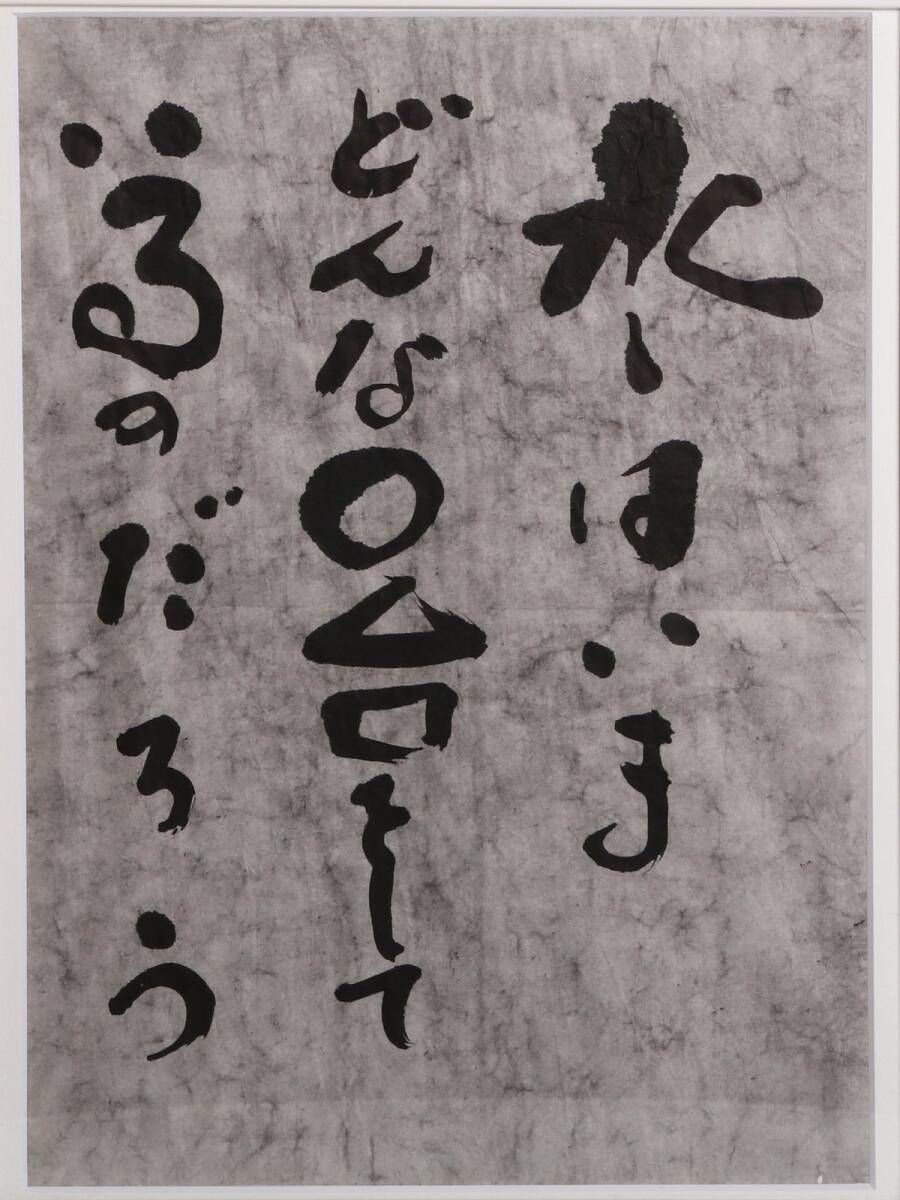 水はいま
どんな○△□をして
いるのだろう